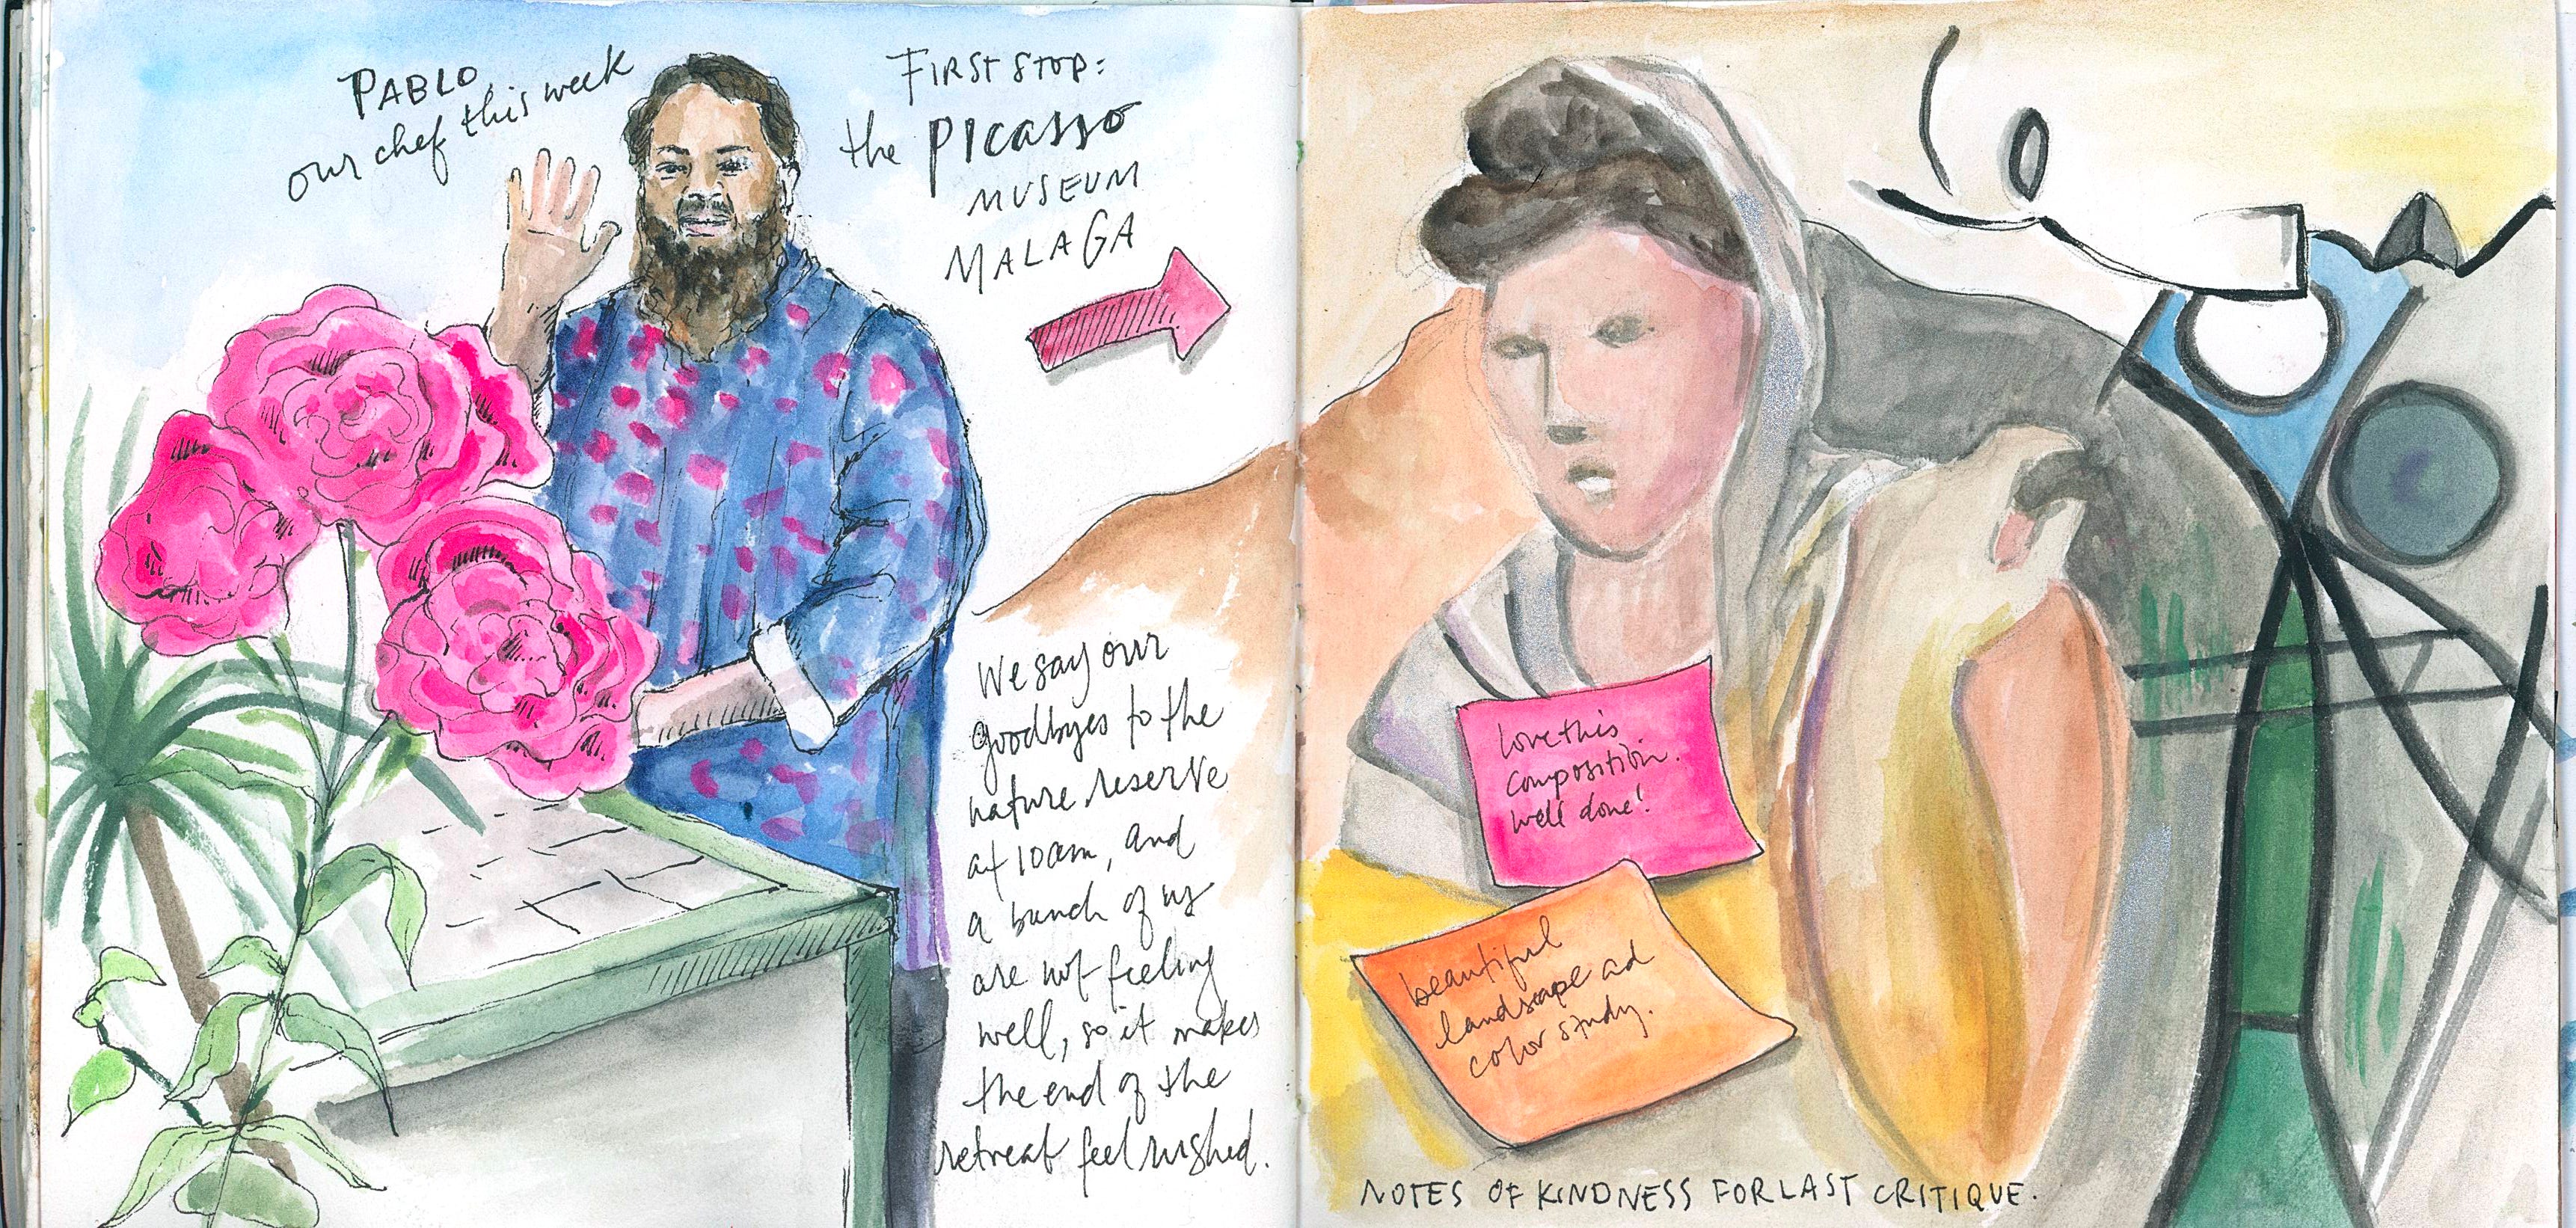 PABLO
our chef this week
FIRST STOP:
the PICASSO
MUSEUM
MALAGA
We say our
goodbyes to the
nature reserve
at 10am, and
a bunch of us
are not feeling
well, so it makes
the end of the
retreat feel rushed.
love this
composition.
well done!
beautiful
landscape ad
color study.
NOTES OF KINDNESS FOR LAST CRITIQUE.